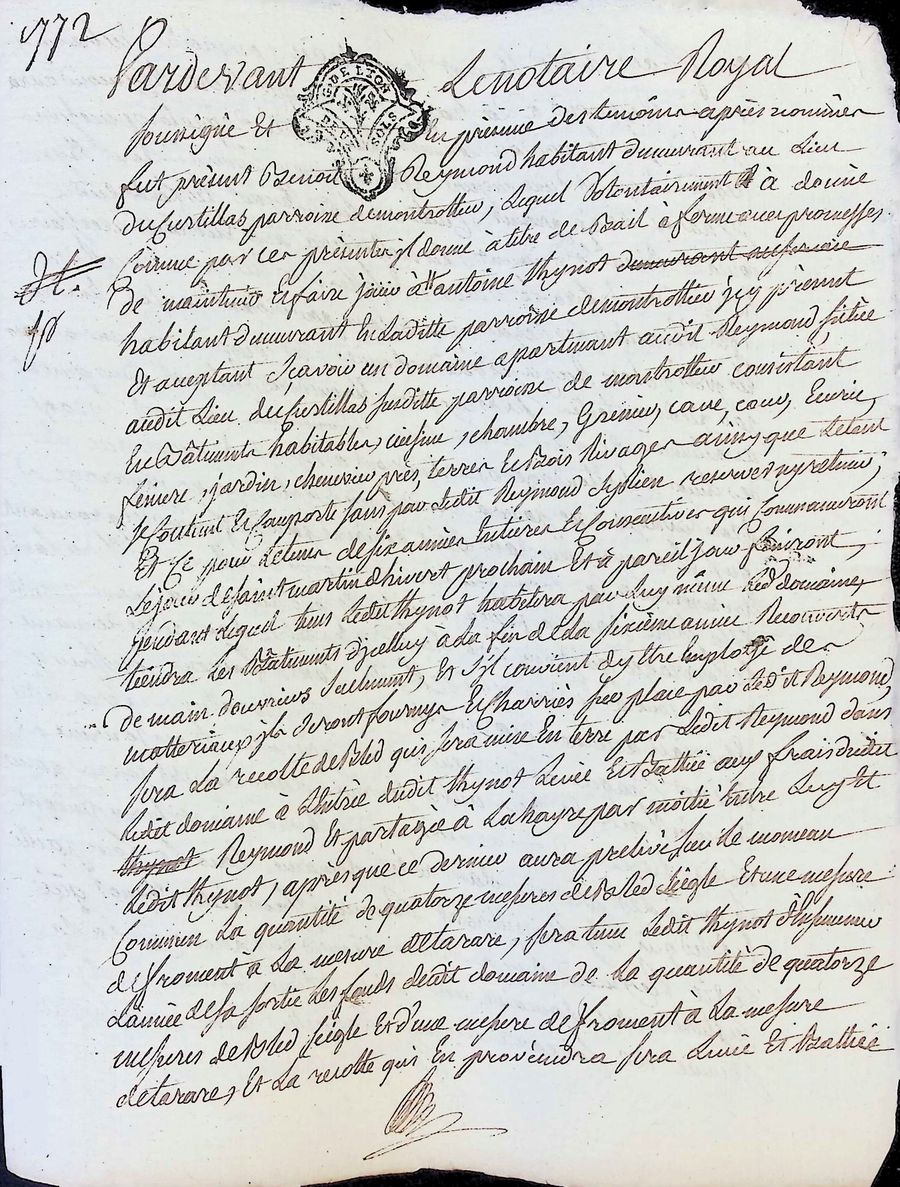 1772
Pardevant Le notaire Royal
G. DE LYON
DEUX SOLS
soussigné Et En présence des temoins après nommés
fut présent Benoit Reymond habitant demeurant au Lieu
du Curtillas parroisse de montrottier, Lequel volontairement à donné
Comme par ces présentes jl donne à titre de Bail à ferme avec promesses
de maintenir et faire jouir à Antoine thynot demeurant
habitant demeurant En Laditte parroisse de montrottier jcy présent
Et acceptant sçavoir un domaine apartenant audit Reymond sittué
audit Lieu du Curtillas susditte parroisse de montrottier consistant
En Bâtiments habitables, cuisine, chambre, Grenier, cave, cour, Ecurie,
feniere, jardin, chenevier, près, terres Et Bois Rivages ainsy que Letout
se Contient Et Comporte sans par Ledit Reymond s'y Rien reserver ny retenir;
Et Ce pour Letems de six années Entieres Et Consecutives qui Commanceront
Le jour de saint martin d'hivert prochain Et à pareil jour finiront,
pendant Lequel tems Ledit thynot habitera par Luy même Led domaine,
tiendra les Bâtiments d'jcelluy à La fin de La sixieme année Recouverts
de main d'ouvriers seullement, Et s'jl convient d'y Etre Employé des
matteriaux jls seront fournys Et Charriés sur place par Ledit Reymond,
sera La recolte de Bled qui sera mise En terre par Ledit Reymond dans
Ledit domaine à L'entrée dudit thynot Levée Et Battüe aux frais dudit
thynot Reymond Et partagée à La hayre par moitié entre Luy Et
Ledit thynot, après que ce dernier aura prelevé sur le monceau
Commun La quantité de quatorze mesures de Bled seigle Et une mesure
de froment à La mesure de tarare, sera tenu Ledit thynot d'Ensemencer
L'année de sa sortie Les fonds dudit domaine de La quantité de quatorze
mesures de Bled seigle Et d'une mesure de froment à La mesure
de tarare, Et La recolte qui En proviendra sera Levée Et Battüe